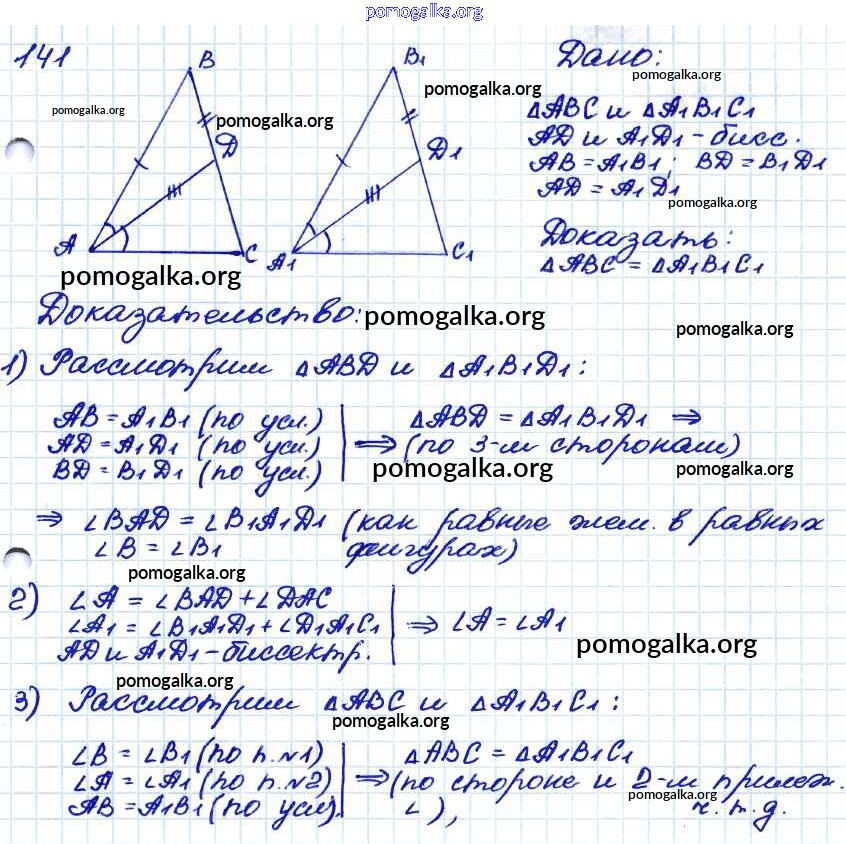 pomogalka.org
141
B
B1
Дано:
pomogalka.org
pomogalka.org
pomogalka.org
pomogalka.org
ΔABC и ΔA1B1C1
D
D1
AD и A1D1 - бисс.
AB = A1B1; BD = B1D1
AD = A1D1
pomogalka.org
A
C
A1
C1
Доказать:
ΔABC = ΔA1B1C1
pomogalka.org
Доказательство: pomogalka.org
pomogalka.org
1) Рассмотрим ΔABD и ΔA1B1D1:
AB = A1B1 (по усл.) ΔABD = ΔA1B1D1 ⇒
AD = A1D1 (по усл.) ⇒ (по 3-м сторонам)
BD = B1D1 (по усл.) pomogalka.org pomogalka.org
⇒ ∠BAD = ∠B1A1D1 (как равные элем. в равных
∠B = ∠B1 фигурах)
pomogalka.org
2) ∠A = ∠BAD + ∠DAC
∠A1 = ∠B1A1D1 + ∠D1A1C1 ⇒ ∠A = ∠A1
AD и A1D1 - биссектр. pomogalka.org
pomogalka.org
3) Рассмотрим ΔABC и ΔA1B1C1:
pomogalka.org
∠B = ∠B1 (по п.№1) ΔABC = ΔA1B1C1
∠A = ∠A1 (по п.№2) ⇒ (по стороне и 2-м прилеж.
pomogalka.org
AB = A1B1 (по усл). ∠), ч.т.д.